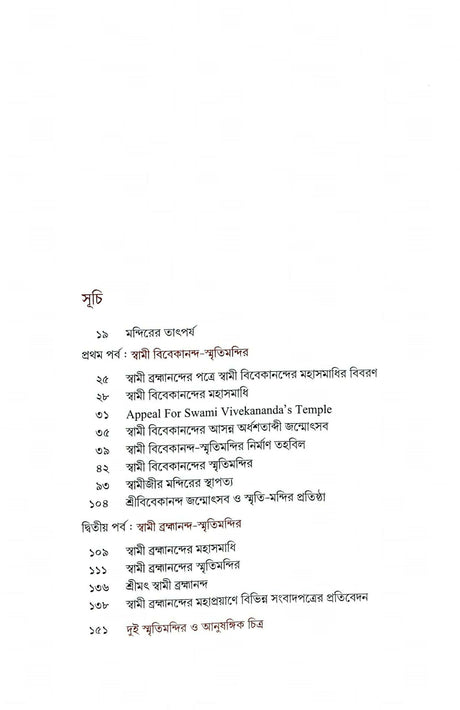 সূচি
১৯ মন্দিরের তাৎপর্য
প্রথম পর্ব : স্বামী বিবেকানন্দ-স্মৃতিমন্দির
২৫ স্বামী ব্রহ্মানন্দের পত্রে স্বামী বিবেকানন্দের মহাসমাধির বিবরণ
২৮ স্বামী বিবেকানন্দের মহাসমাধি
৩১ Appeal For Swami Vivekananda's Temple
৩৫ স্বামী বিবেকানন্দের আসন্ন অর্ধশতাব্দী জন্মোৎসব
৩৯ স্বামী বিবেকানন্দ-স্মৃতিমন্দির নির্মাণ তহবিল
৪২ স্বামী বিবেকানন্দের স্মৃতিমন্দির
৯৩ স্বামীজীর মন্দিরের স্থাপত্য
১০৪ শ্রীবিবেকানন্দ জন্মোৎসব ও স্মৃতি-মন্দির প্রতিষ্ঠা
দ্বিতীয় পর্ব : স্বামী ব্রহ্মানন্দ-স্মৃতিমন্দির
১০৯ স্বামী ব্রহ্মানন্দের মহাসমাধি
১১১ স্বামী ব্রহ্মানন্দের স্মৃতিমন্দির
১৩৬ শ্রীমৎ স্বামী ব্রহ্মানন্দ
১৩৮ স্বামী ব্রহ্মানন্দের মহাপ্রয়াণে বিভিন্ন সংবাদপত্রের প্রতিবেদন
১৫১ দুই স্মৃতিমন্দির ও আনুষঙ্গিক চিত্র